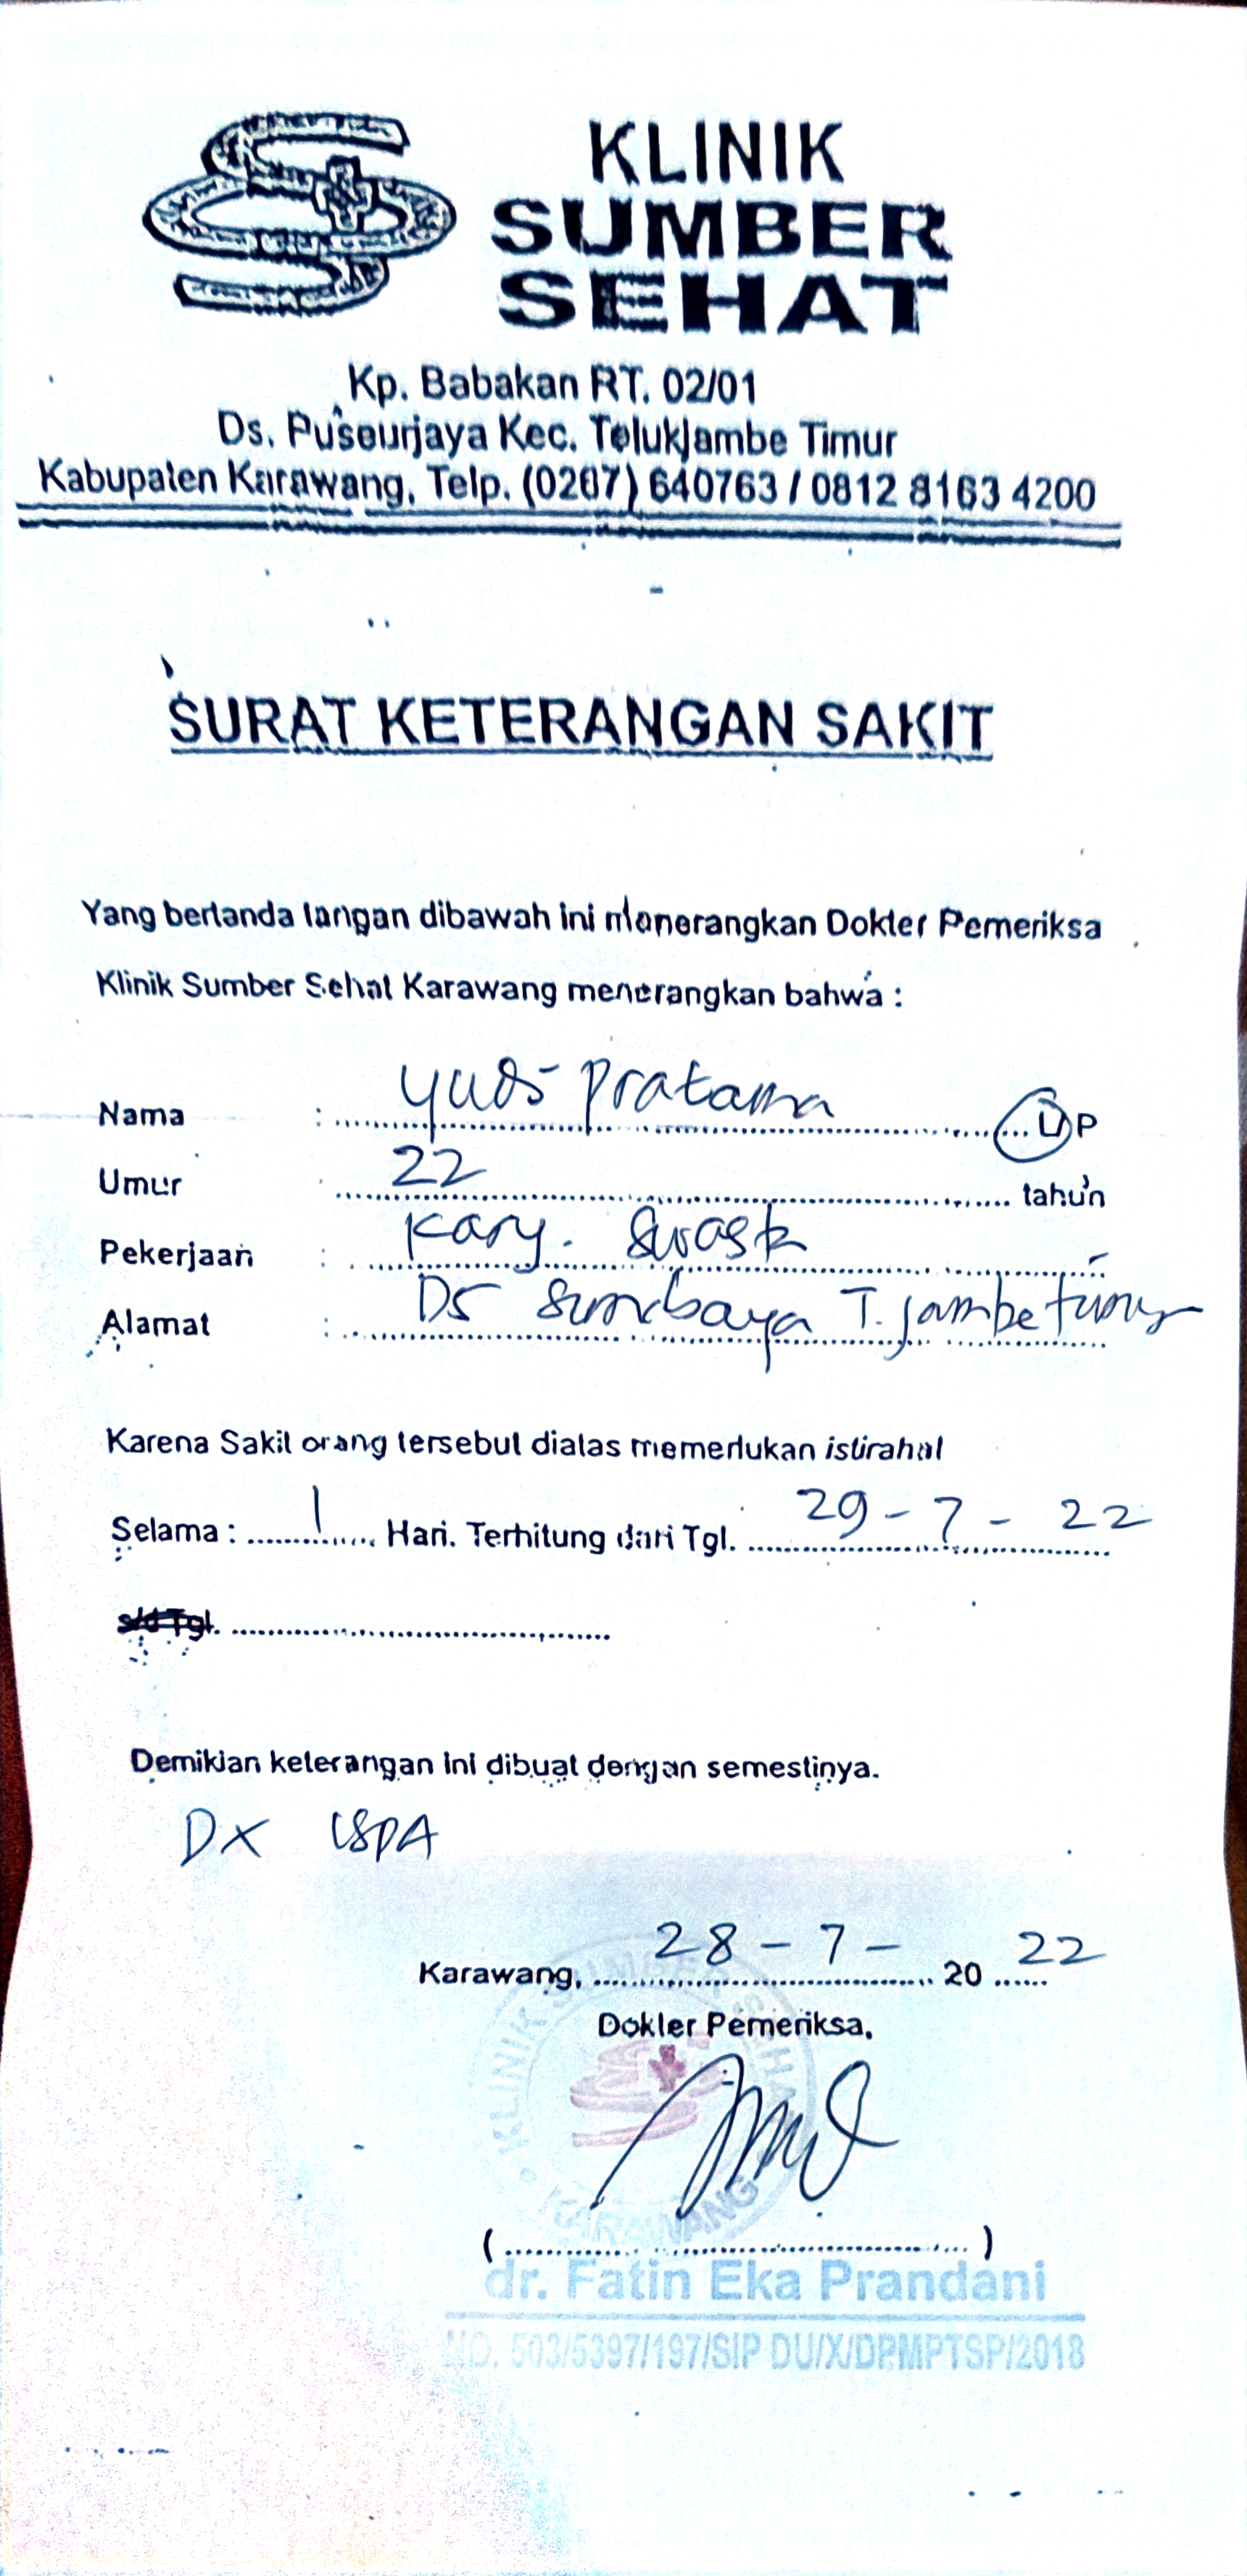 KLINIK
SUMBER
SEHAT
Kp. Babakan RT. 02/01
Ds. Puseurjaya Kec. Telukjambe Timur
Kabupaten Karawang, Telp. (0267) 640763 / 0812 8163 4200
SURAT KETERANGAN SAKIT
Yang bertanda tangan dibawah ini menerangkan Dokter Pemeriksa
Klinik Sumber Sehat Karawang menerangkan bahwa :
Nama : Yudi Pratama L/P
Umur 22 tahun
Pekerjaan : Kary. Swasta
Alamat : Ds T. Jambe timur
Karena Sakit orang tersebut diatas memerlukan istirahat
Selama : 1 Hari. Terhitung dari Tgl. 29-7-22
s/d Tgl.
Demikian keterangan ini dibuat dengan semestinya.
DX ISPA
Karawang, 28-7-2022
Dokter Pemeriksa,
KLINIK SUMBER SEHAT
KARAWANG
( )
dr. Fatin Eka Prandani
NO. 503/5397/197/SIP DU/X/DPMPTSP/2018